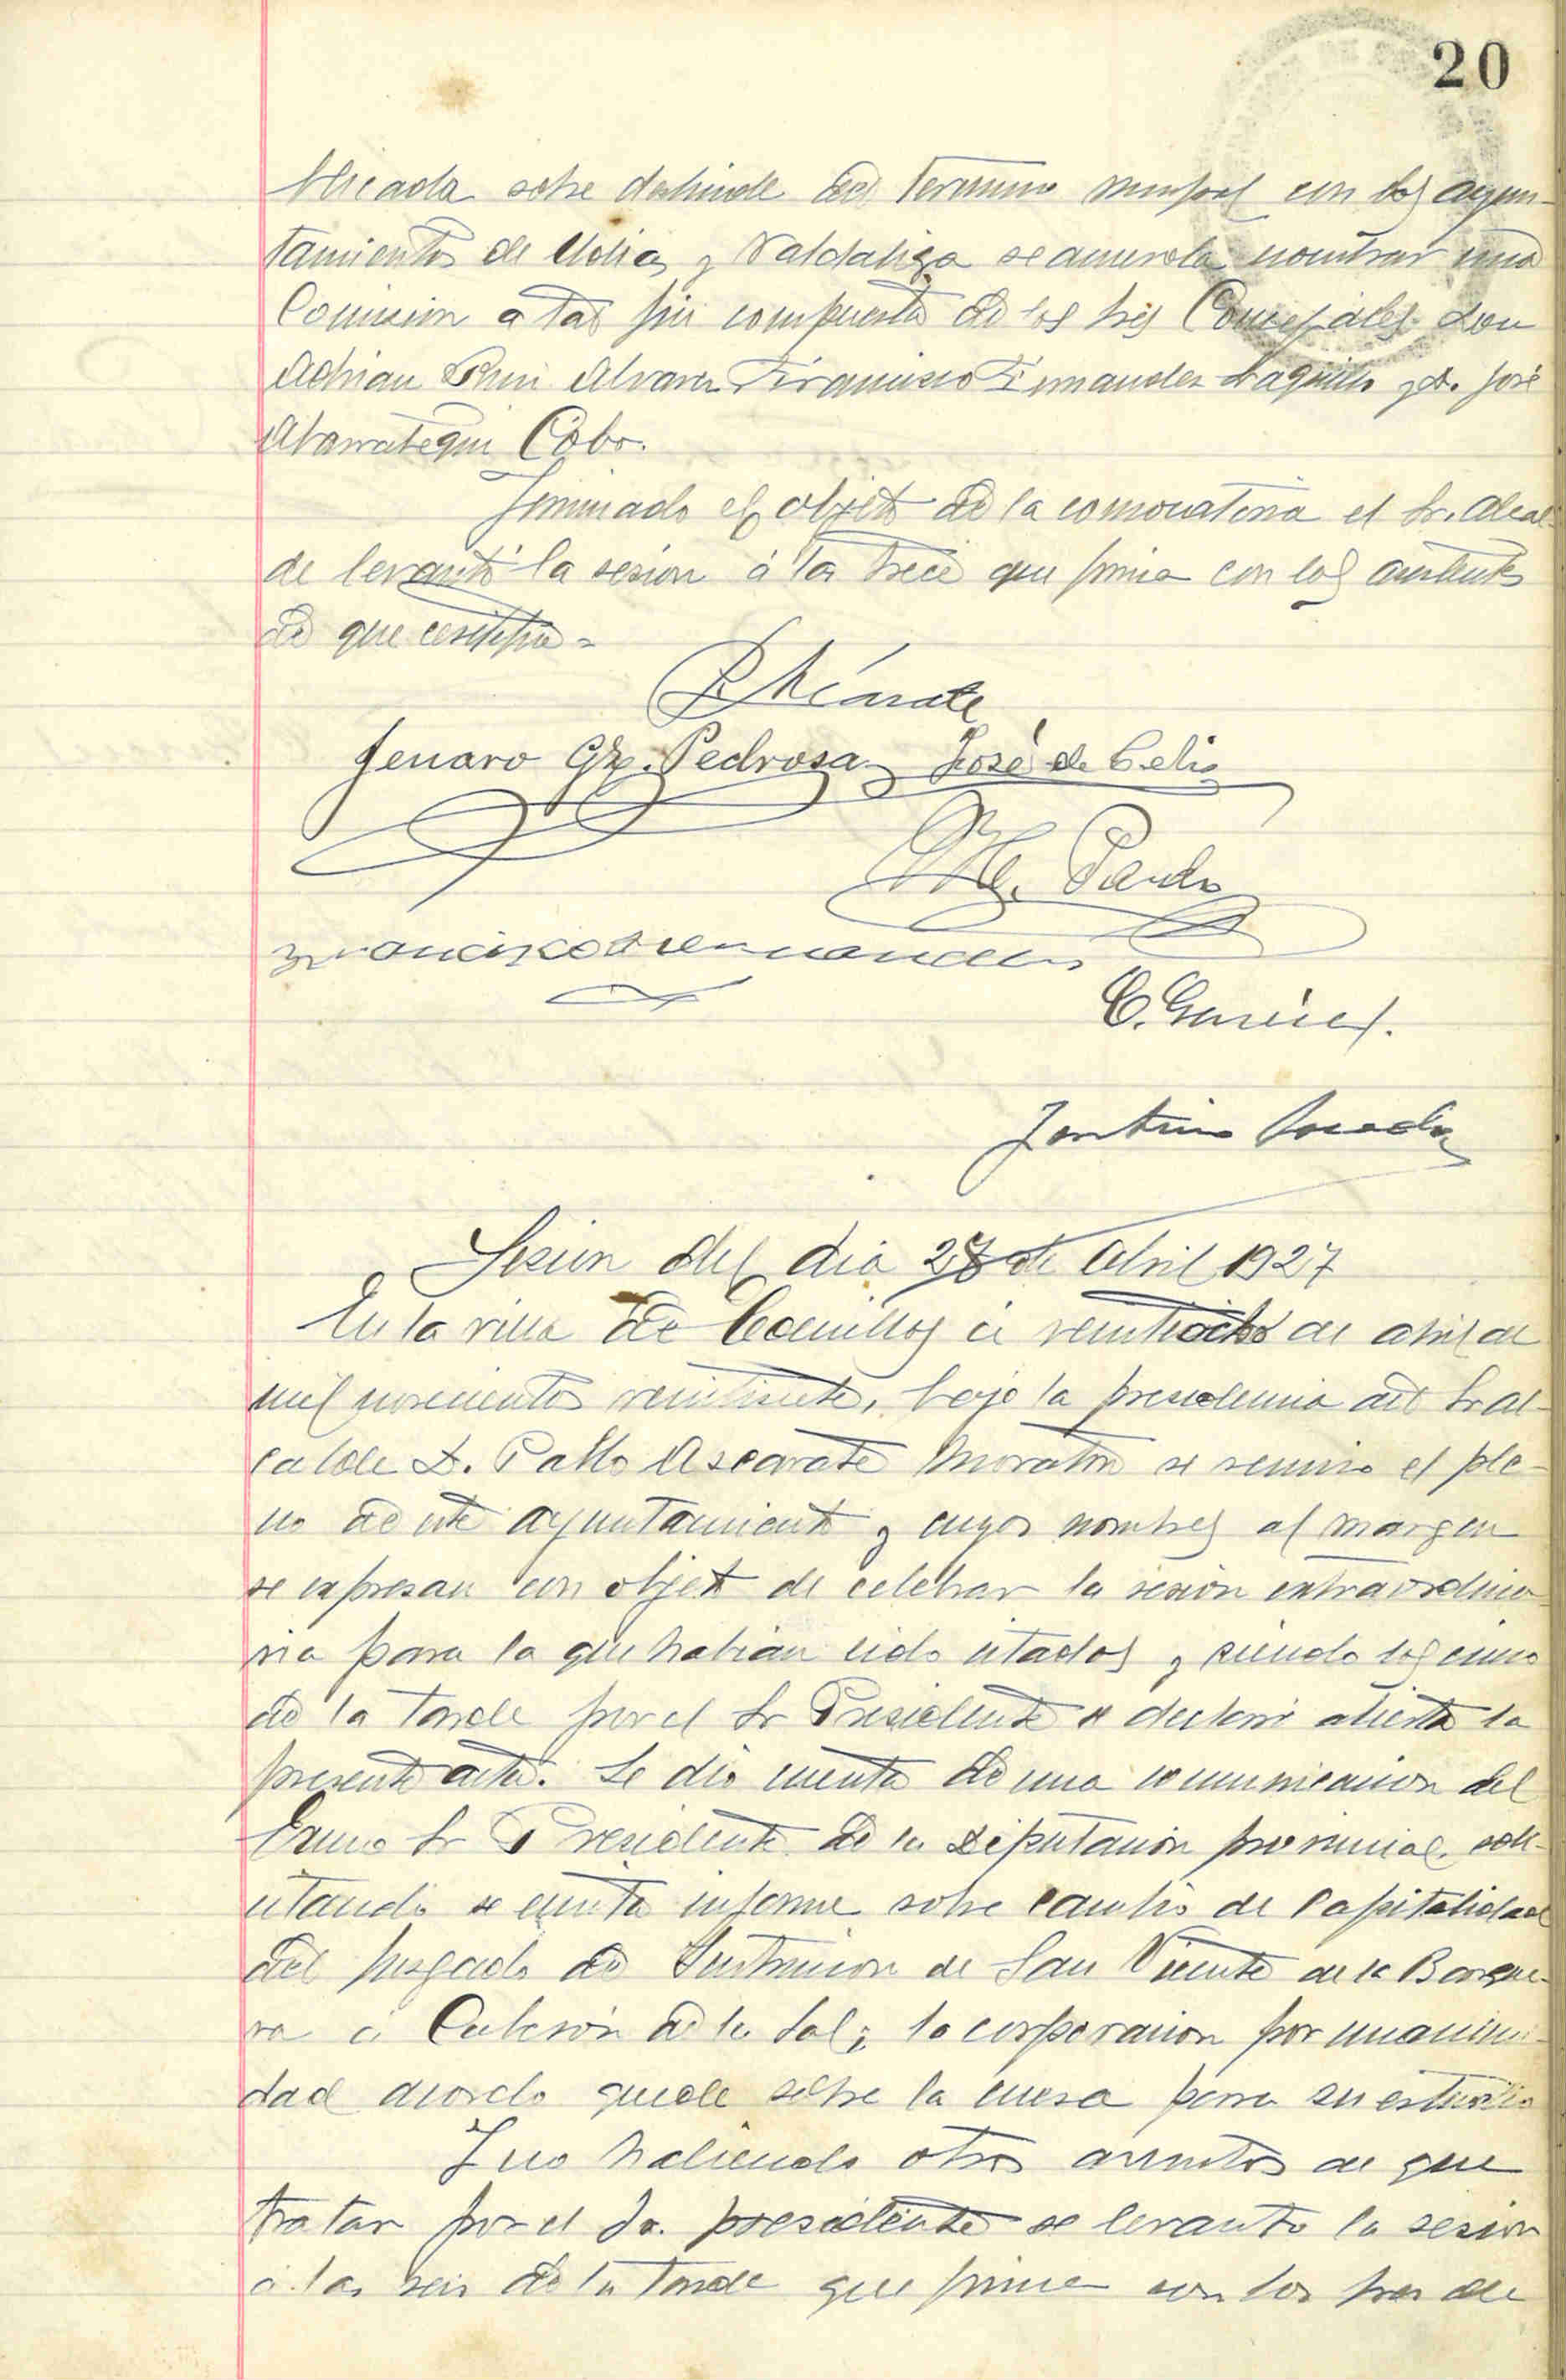 20
blicada sobre deslinde del termino munpal con los ayun-
tamientos de Udias y Valdaliga se acuerda nombrar una
Comision a tal fin compuesta de los tres Concejales don
Adrian Ruiz Alvarez Francisco Fernandez y D. José
Abarrategui Cobo.
Terminado el objeto de la convocatoria el Sr. Alcal-
de levantó la sesion á las trece que firma con los asistentes
de que certifico =
P Ascarate
Jenaro Gz. Pedrosa José de Celis
M. Pardo
Francisco Fernandez
C. Garcia
Sesion del dia 28 de Abril 1927
En la villa de Comillas á veintiocho de abril de
mil novecientos veintisiete, bajo la presidencia del Sr al-
calde D. Pablo Ascarate Moratin se reunio el ple-
no de este ayuntamiento y cuyos nombres al margen
se expresan con objeto de celebrar la sesion extraordina-
ria para la que habian sido citados y siendo las cinco
de la tarde por el Sr Presidente se declaró abierta la
presente acta. Se dió cuenta de una comunicacion del
Exmo Sr Presidente de la Diputacion provincial, soli-
citando se emita informe sobre cambio de Capitalidad
del Juzgado de Instruccion de San Vicente de la Barque-
ra á Cabezón de la Sal; la corporacion por unanimi-
dad acordo quede sobre la mesa para su estudio
Y no habiendo otros asuntos de que
tratar por el Sr. presidente se levanto la sesion
á las seis de la tarde que firma con los sres de